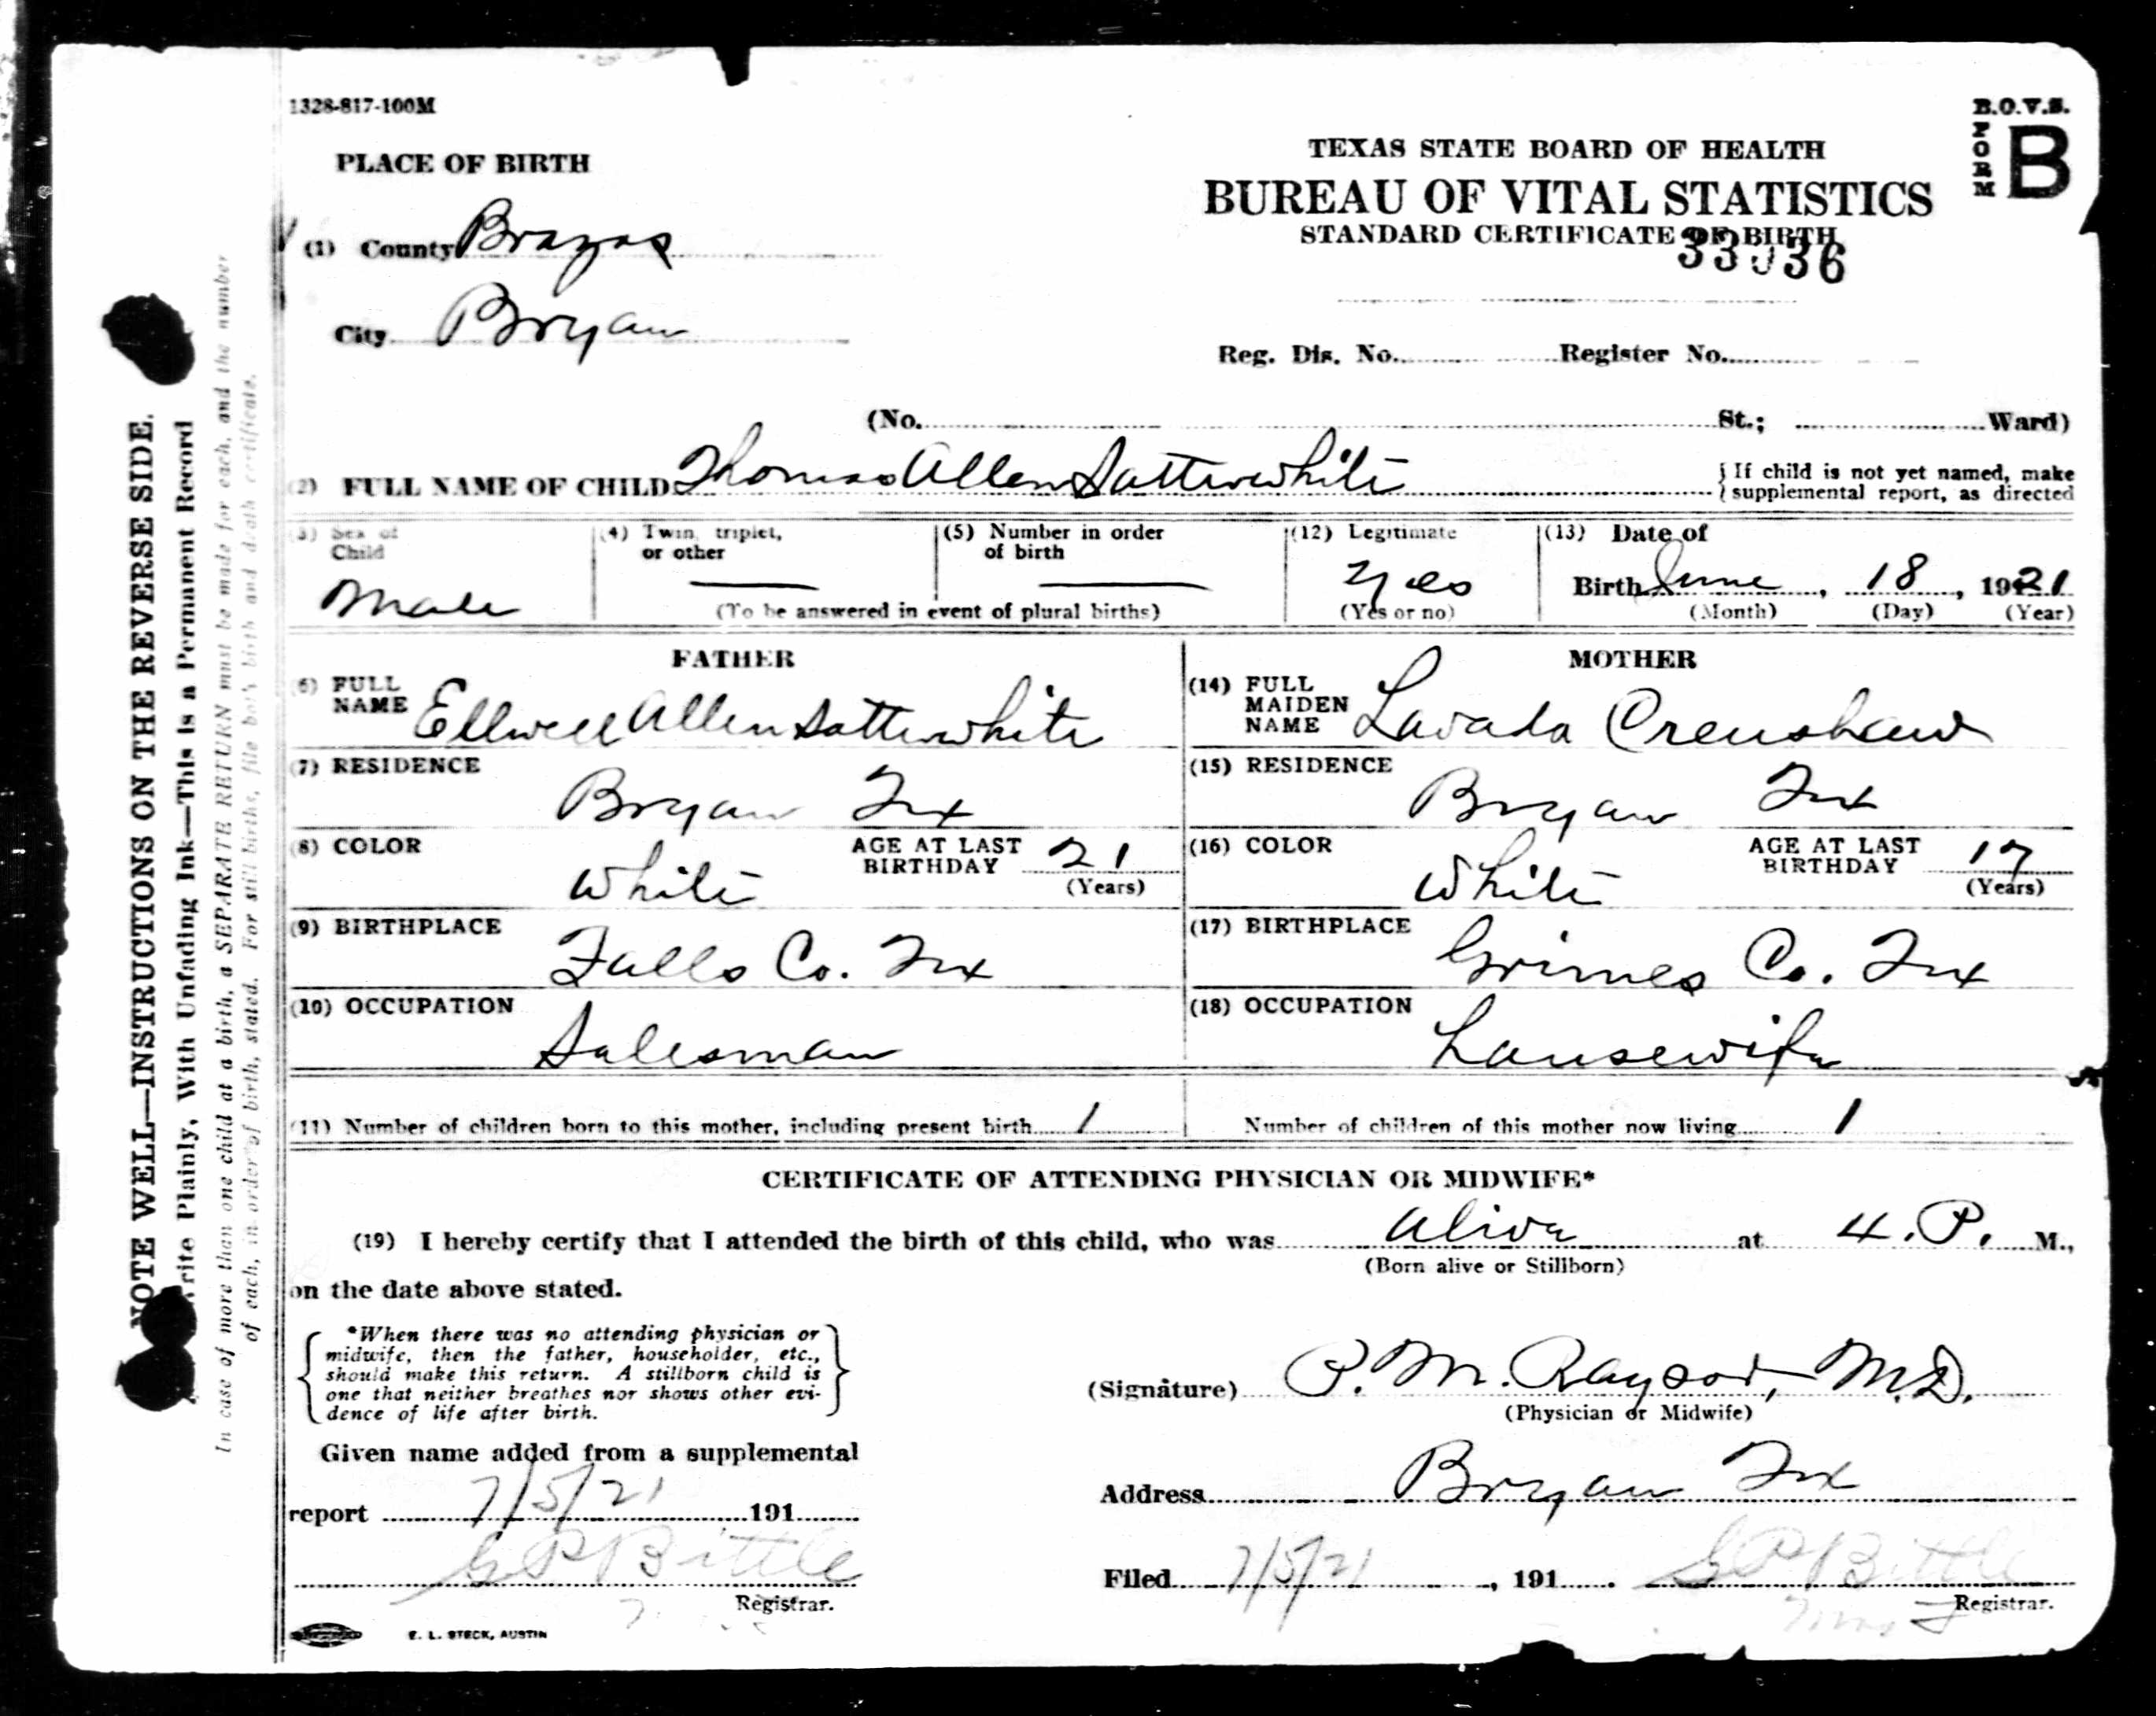 1328-817-100M
B.O.V.S.
FORM B
PLACE OF BIRTH
TEXAS STATE BOARD OF HEALTH
BUREAU OF VITAL STATISTICS
STANDARD CERTIFICATE OF BIRTH
33036
(1) County Brazos
City Bryan
Reg. Dis. No. Register No.
(No. St.; Ward)
(2) FULL NAME OF CHILD Thomas Allen Satterwhite
{If child is not yet named, make
supplemental report, as directed
(3) Sex of Child Male
(4) Twin, triplet, or other —
(5) Number in order of birth —
(To be answered in event of plural births)
(12) Legitimate Yes
(Yes or no)
(13) Date of
Birth June, 18, 1921
(Month) (Day) (Year)
FATHER
(6) FULL NAME Ellwell Allen Satterwhite
(7) RESIDENCE
Bryan Tex
(8) COLOR White
AGE AT LAST BIRTHDAY 21
(Years)
(9) BIRTHPLACE
Falls Co. Tex
(10) OCCUPATION
Salesman
MOTHER
(14) FULL MAIDEN NAME Lavada Crenshaw
(15) RESIDENCE
Bryan Tex
(16) COLOR White
AGE AT LAST BIRTHDAY 17
(Years)
(17) BIRTHPLACE
Grimes Co. Tex
(18) OCCUPATION
Housewife
(11) Number of children born to this mother, including present birth 1
Number of children of this mother now living 1
CERTIFICATE OF ATTENDING PHYSICIAN OR MIDWIFE*
(19) I hereby certify that I attended the birth of this child, who was Alive at 4. P. M.,
(Born alive or Stillborn)
on the date above stated.
*When there was no attending physician or
midwife, then the father, householder, etc.,
should make this return. A stillborn child is
one that neither breathes nor shows other evi-
dence of life after birth.
(Signature) P. M. Raysor, M.D.
(Physician or Midwife)
Given name added from a supplemental
report 7/5/21 191
G P Bittle
Registrar.
Address Bryan Tex
Filed 7/5/21, 191 . G P Bittle
Registrar.
E. L. STECK, AUSTIN
NOTE WELL—INSTRUCTIONS ON THE REVERSE SIDE.
Write Plainly, With Unfading Ink—This is a Permanent Record
In case of more than one child at a birth, a SEPARATE RETURN must be made for each, and the number
of each, in order of birth, stated. For stillbirths, file both birth and death certificate.